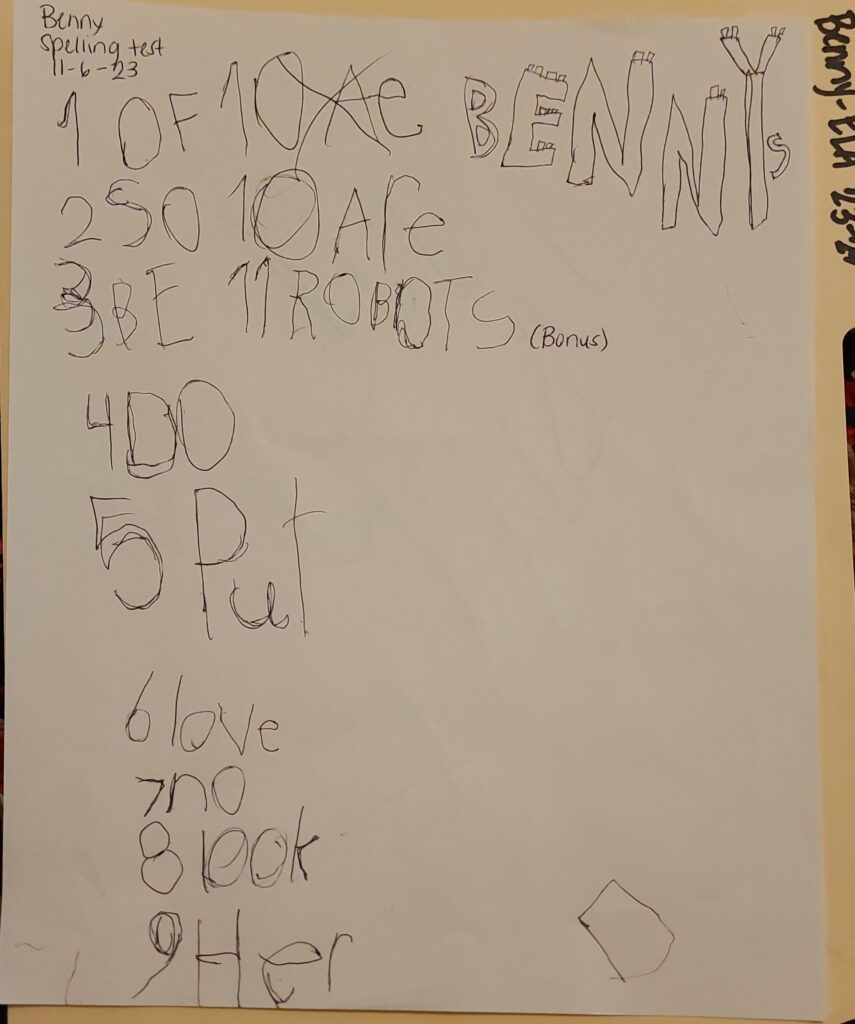 Benny
Spelling test
11-6-23
1 OF
2 SO
3 BE
4 DO
5 Put
6 love
7 no
8 look
9 Her
10 Ae
10 Are
11 ROBOTS (Bonus)
BENNYs
Benny-ELA 23-24